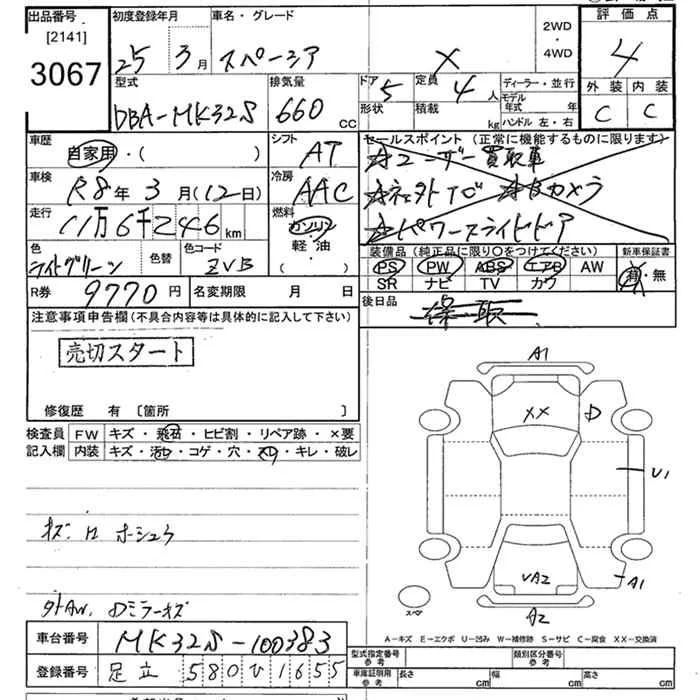 出品番号 初度登録年月 車名・グレード 2WD・4WD 評価点
[2141]
3067 25年3月 スペーシア X 4
型式 排気量 ドア 5 定員 4人 ディーラー・並行 外装 内装
DBA-MK32S 660cc 形状 積載 kg モデル年式 年 ハンドル 左・右 C C
車歴 自家用・( ) シフト AT セールスポイント(正常に機能するものに限ります)
☆ユーザー買取車
車検 R8年3月(12日) 冷房 AAC
☆ネット TV ☆Bカメラ
走行 11万6千246km 燃料 ガソリン・軽油・( )
☆パワースライドドア
色 ライトグリーン 色替 色コード ZVB
装備品(純正品に限り○をつけてください) 新車保証書
PS PW ABS エアB AW 有・無
SR ナビ TV カワ
R券 9770円 名変期限 月 日
後日品
注意事項申告欄(不具合内容等は具体的に記入して下さい)
売切スタート
修復歴 有[箇所 ]
検査員記入欄 FW キズ・飛石・ヒビ割・リペア跡・×要
内装 キズ・汚れ・コゲ・穴・スレ・キレ・破レ
A1
XX D
U1
UA2 A1
A2
スペア
外AW. Dミラーキズ
A-キズ E-エクボ U-凹み W-補修跡 S-サビ C-腐食 XX-交換済
車台番号 MK32S-100383
登録番号 足立 580 ひ 1655
型式指定番号 参考 類別区分番号 参考
車庫証明用 参考 長さ cm 幅 cm 高さ cm